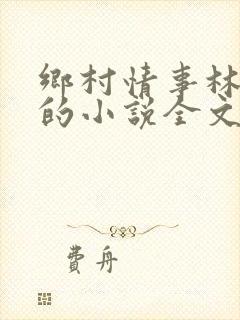 鄉村情事林
的小說全文
費舟